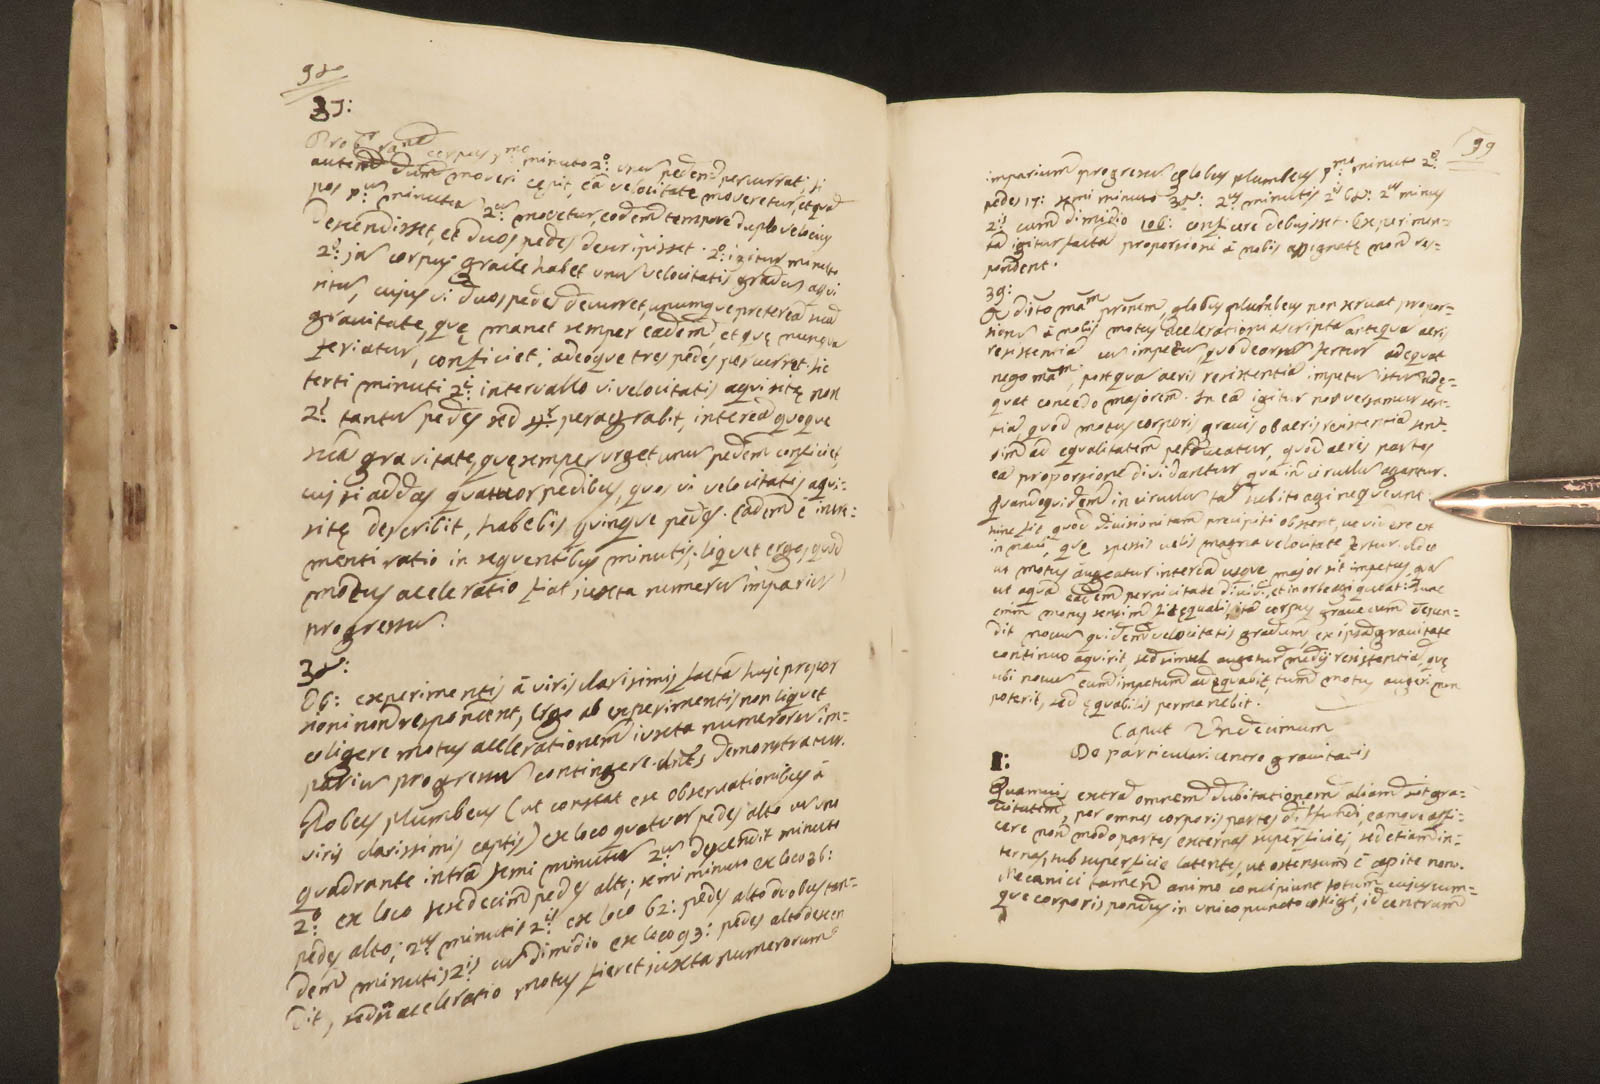 98
37:
Prob: corpus 1mo minuto 2o: unu pedem percurrat; si
autem moveri cepit, eâ velocitate moveretur, et quâ
pos minutu 2us movetur, eodem tempore duplo velocius
descendisset, et duos pedes descripisset. 2o: igitur minuto
2o: ja corpus graue habet unu velocitatis gradus aqui
situ, cujus vi duos pedes decurret, unumque preterea sua
grauitate, quę manet semper eadem, et quę nunqua
feriatur, conficiet; adeoque tres pedes percurret. sic
terti minuti 2i: intervallo vi velocitatis aquisitę non
2s tantu pedes sed 4r peragrabit, interea quoque
sua grauitate, quę semper urget unu pedem conficiet,
cui si addas quatuor pedibus, quos vi velocitatis aqui=
sitę describit, habebis quinque pedes. Eadem ē incre=
menti ratio in sequentibus minutis; liquet ergo, quod
motus acceleratio fiat juxta numeru impariu
progressu.
38:
Ob: experimentis â viris clarissimis facta huic propor
tioni non respondent, Ergo ab experimentis non liquet
coligere motus accelerationem iuxta numeroru im=
pariu progressu contingere. Ants demonstratur.
Globus plumbeus (ut constat ex observationibus â
viris clarissimis captis) ex loco quatuor pedes alto uno
quadrante intra semi minutu 2us descendit minuto
2o ex loco sexdecim pedes alto; semi minuto ex loco 36:
pedes alto; 2us minutis 2is ex loco 62: pedes alto duobus tan=
dem minutis 2is cu dimidio ex loco 93: pedes alto descen
dit, sed si acceleratio motus fieret juxta numerorum
99
imparium progressu globus plumbeus 1mo minuto 2o:
pedes 17: semi minuto 38: 2us minutis 2is 68: 2us minus
2is cum dimidio 106: conficere debuisset. Experimen=
ta igitur facta proporsioni â nobis assignatę non res=
pondent.
39:
Rdisto mam pronem, globus plumbeus non seruat propor=
sionu â nobis motus accelerationi ascripta antequa aeris
resistentia cu impetu, quo deorsu fertur adequat
nego mam, postqua aeris resistentia impetu istu adę=
quat concedo majorem. In ea igitur nos versamur sen=
tia, quod motus corporis grauis ob aeris resistentia sen=
sim ad equalitatem perducatur, quod aeris partes
ea proporsione dividantur, qua in circullu agantur.
quandoquidem in circulu ta subito agi nequeunt
sine fit quod divisioni tam precipiti obstent, ue videre est
in naui, quę spessis uelis magna velocitate fertur. Adeo
ut motus augeatur interea usque major sit impetus, qua
ut aqua eadem pernicitate dividi, et in orbe agi queat. Tunc
enim motus sensim fit equalis, ita corpus graue cum descen=
dit nouu quidem velocitatis gradum ex ipsa grauitate
continuo aquirit, sed simul augetur medij resistentia, quę
ubi nouu eum impetum adequabit, tum motus augeri non
poterit, sed ęquabilis permanebit.
Caput Undecimum
De particulari centro grauitatis
1:
Quamuis extra omnem dubitationem aliam sit gra=
uitatem, per omnes corporis partes diffundi, eamque affi=
cere non modo partes externas superficiei, sed etiam in=
ternas, sub superficie latentes, ut ostensum ē capite nono.
Mecanici tamen animo concipiunt totum cujuscum=
que corporis pondus in unico puncto coligi, id centrum